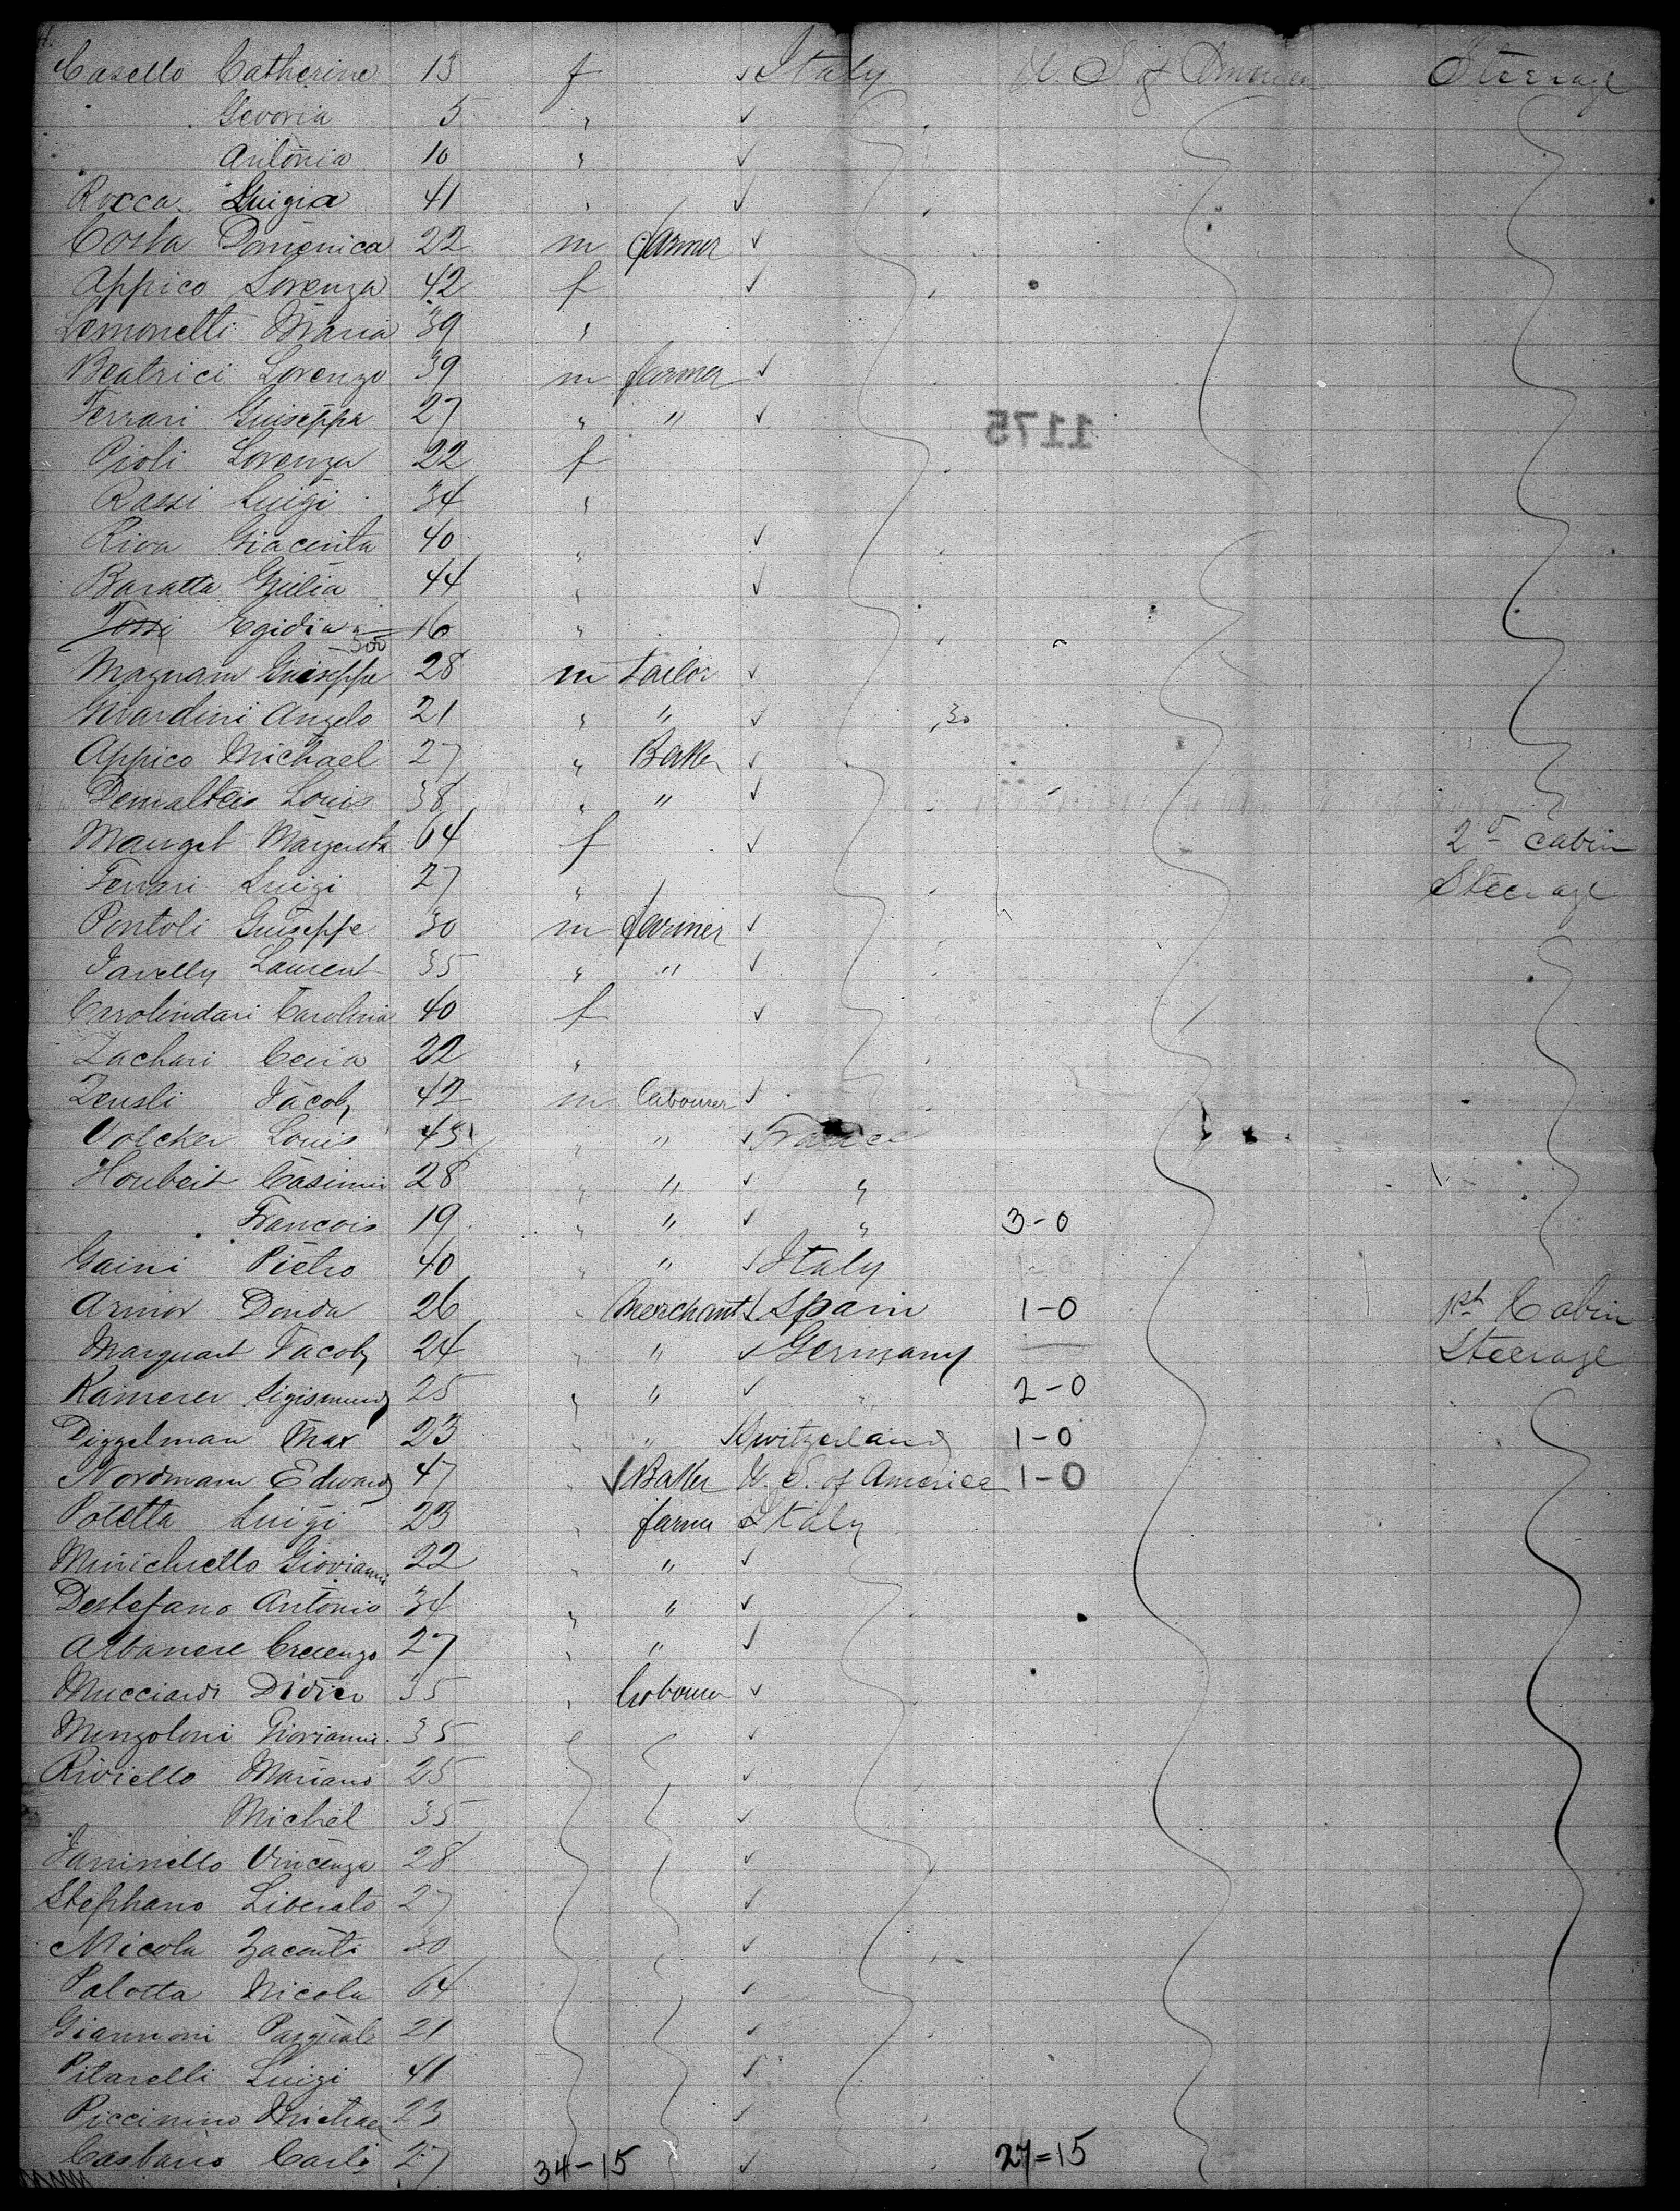 Casello Catherine 13 f ✓ Italy U. S of America Steerage
Gevoria 5 " ✓
Antonia 10 " ✓
Rocca Luigia 41 " ✓
Costa Domenica 22 m farmer ✓
Appico Lorenza 42 f ✓
Lemonetti Maria 39 "
Beatrici Lorenzo 39 m farmer ✓
Ferrari Guiseppa 27 " " ✓
1175
Pioli Lorenza 22 f
Rassi Luigi 34 "
Riva Giacinta 40 " ✓
Baratta Giulia 44 " ✓
Tossi Egidia 16 "
300
Magnani Guiseppe 28 m tailor ✓
Girardini Angelo 21 " " ✓ 30
Appico Michael 27 " Baker ✓
Demalteis Louis 38 " " ✓
Mauget Margerita 64 f ✓ 2d cabin
Ferrari Luigi 27 " Steerage
Pontoli Guiseppe 30 m farmer ✓
Javelly Laurent 35 " " ✓
Carolindari Carolina 40 f ✓
Zachari Ceria 22 "
Zensli Jacob 42 m Labourer ✓
Volcker Louis 43 " " ✓ France
Houbeit Casimir 28 " " ✓ "
Francois 19 " " ✓ " 3-0
Gaini Pietro 40 " " ✓ Italy
Armor Donda 26 " Merchant ✓ Spain 1-0 1st Cabin
Marquart Jacob 24 " " ✓ Germany Steerage
Kamerer Sigismund 25 " " ✓ " 2-0
Diggelman Max 23 " " ✓ Switzerland 1-0
Nordmann Edward 47 " ✓ Baker U. S. of America 1-0
Poletta Luigi 23 " farmer Italy
Minichiello Giovianni 22 " " ✓
Destefano Antonio 34 " " ✓
Albanese Crecenzo 27 " " ✓
Mucciardi Didier 35 " Labourer ✓
Mengoloni Giovianni 35 ✓
Riviello Mariano 25 ✓
Michel 35 ✓
Janinello Vincenza 28 ✓
Stephano Liberato 27 ✓
Nicola Zaconti 30 ✓
Palotta Nicola 64 ✓
Giannoni Pasquale 21 ✓
Pitarelli Luigi 41 ✓
Piccinino Michael 23 ✓
Castano Carlo 27 34-15 ✓ 27=15